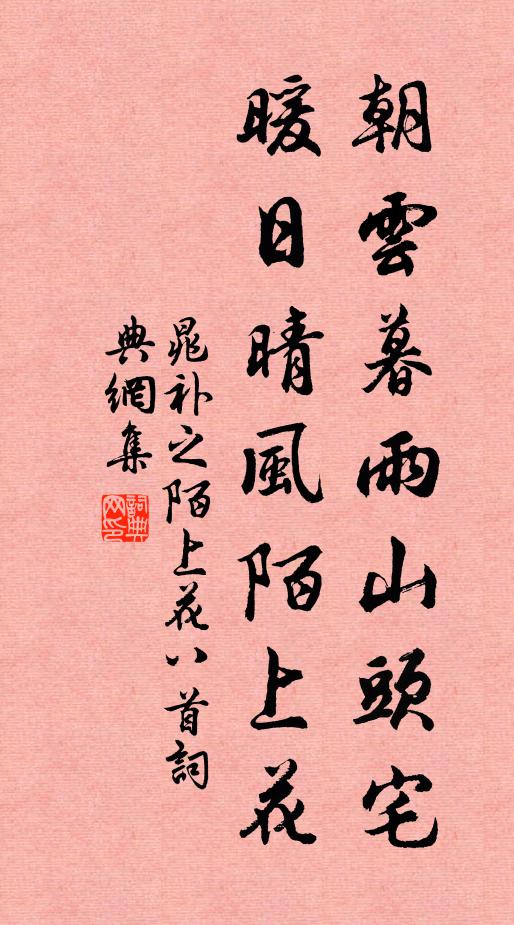 朝雲暮雨山頭宅
暖日晴風陌上花
晁補之陌上花八首詞
典網集
詞典网印